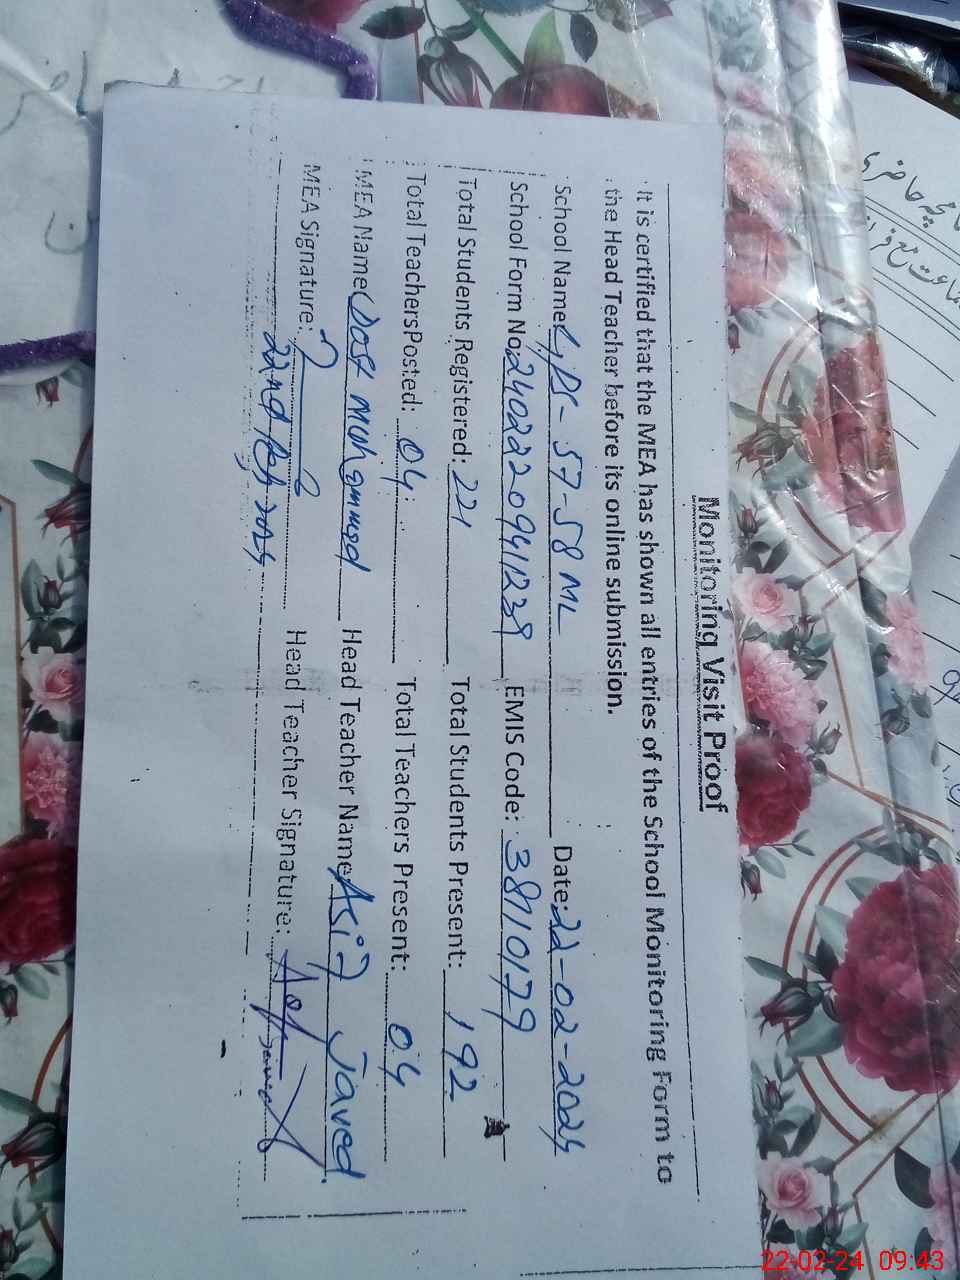 Monitoring Visit Proof
It is certified that the MEA has shown all entries of the School Monitoring Form to
the Head Teacher before its online submission.
School Name GPS-57-58 ML Date: 22-02-2024
School Form No: 2402220941239 EMIS Code: 38110179
Total Students Registered: 221 Total Students Present: 192
Total TeachersPosted: 04 Total Teachers Present: 04
MEA Name Dost Muhammad Head Teacher Name Asif Javed
MEA Signature: Head Teacher Signature:
22nd Feb 2024
22-02-24 09:43
حاضری